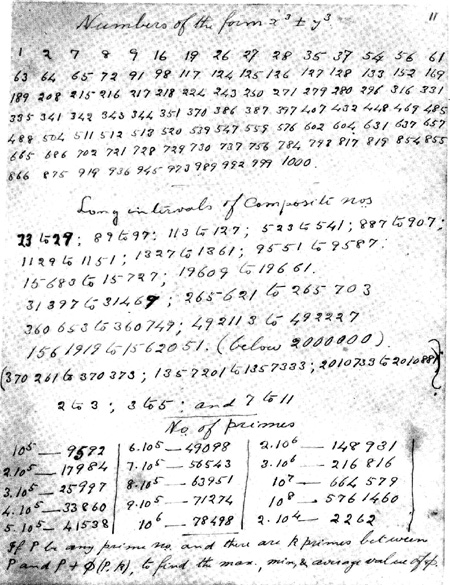 11
Numbers of the form x³ ± y³.
1 2 7 8 9 16 19 26 27 28 35 37 54 56 61
63 64 65 72 91 98 117 124 125 126 127 128 133 152 169
189 208 215 216 217 218 224 243 250 271 279 280 296 316 331
335 341 342 343 344 351 370 386 387 397 407 432 448 469 485
488 504 511 512 513 520 539 547 559 576 602 604 631 637 657
665 686 702 721 728 729 730 737 756 784 793 817 819 854 855
866 875 919 936 945 973 989 992 999 1000.
Long intervals of Composite nos
23 to 29; 89 to 97; 113 to 127; 523 to 541; 887 to 907;
1129 to 1151; 1327 to 1361; 9551 to 9587.
15683 to 15727; 19609 to 19661.
31397 to 31469; 265621 to 265703
360653 to 360749; 492113 to 492227
1561919 to 1562051. (below 2000000).
(370261 to 370373; 1357201 to 1357333; 2010733 to 2010881)
2 to 3; 3 to 5; and 7 to 11
No. of primes
10⁵ — 9592 6.10⁵ — 49098 2.10⁶ — 148931
2.10⁵ — 17984 7.10⁵ — 56543 3.10⁶ — 216816
3.10⁵ — 25997 8.10⁵ — 63951 10⁷ — 664579
4.10⁵ — 33860 9.10⁵ — 71274 10⁸ — 5761460
5.10⁵ — 41538 10⁶ — 78498 2.10⁴ — 2262
If P be any prime no. and there are k primes between
P and P + φ(P, k), to find the max., min., & average value of φ.